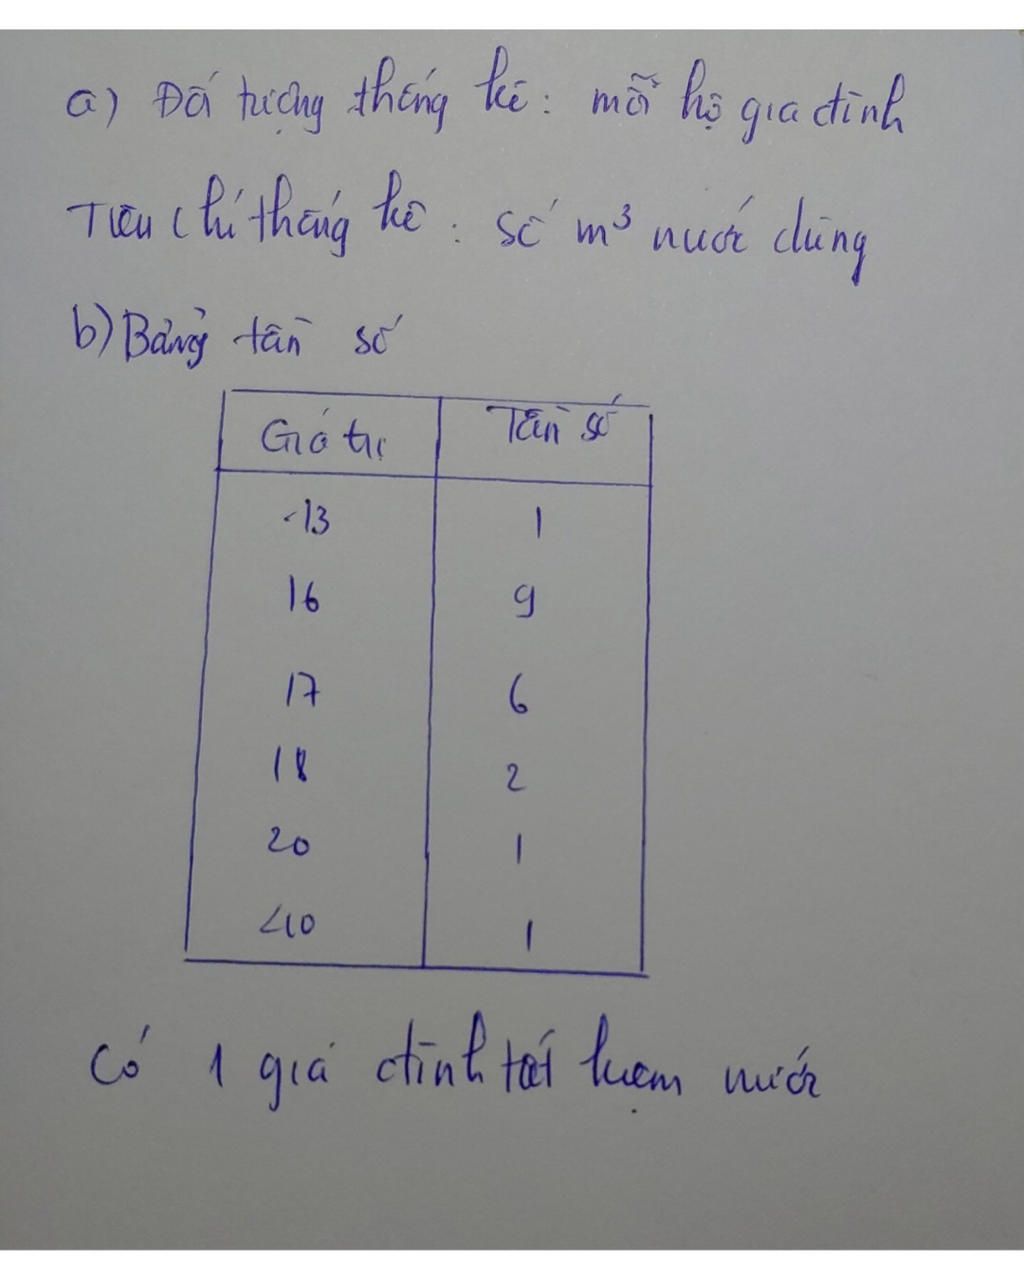 a) Đối tượng thống kê : mỗi hộ gia đình
Tiêu chí thống kê : số m³ nước dùng
b) Bảng tần số
Giá trị Tần số
13 1
16 9
17 6
18 2
20 1
40 1
Có 1 giá đình tiết kiệm nước